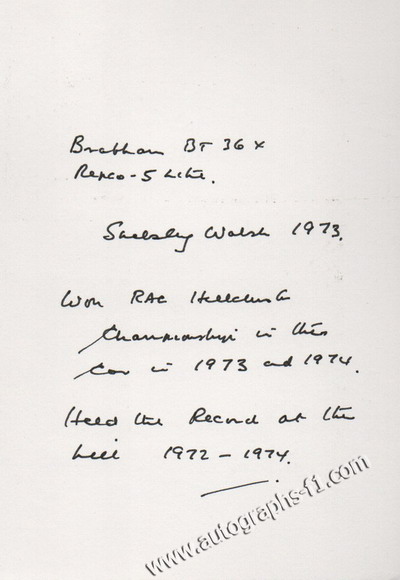 Brabham BT 36 x
Repco - 5 Litre.
Shelsley Walsh 1973.
Won RAC Hillclimb
Championships in this
Car in 1973 and 1974.
Held the Record at the
hill 1972 - 1974.
www.autographs-f1.com